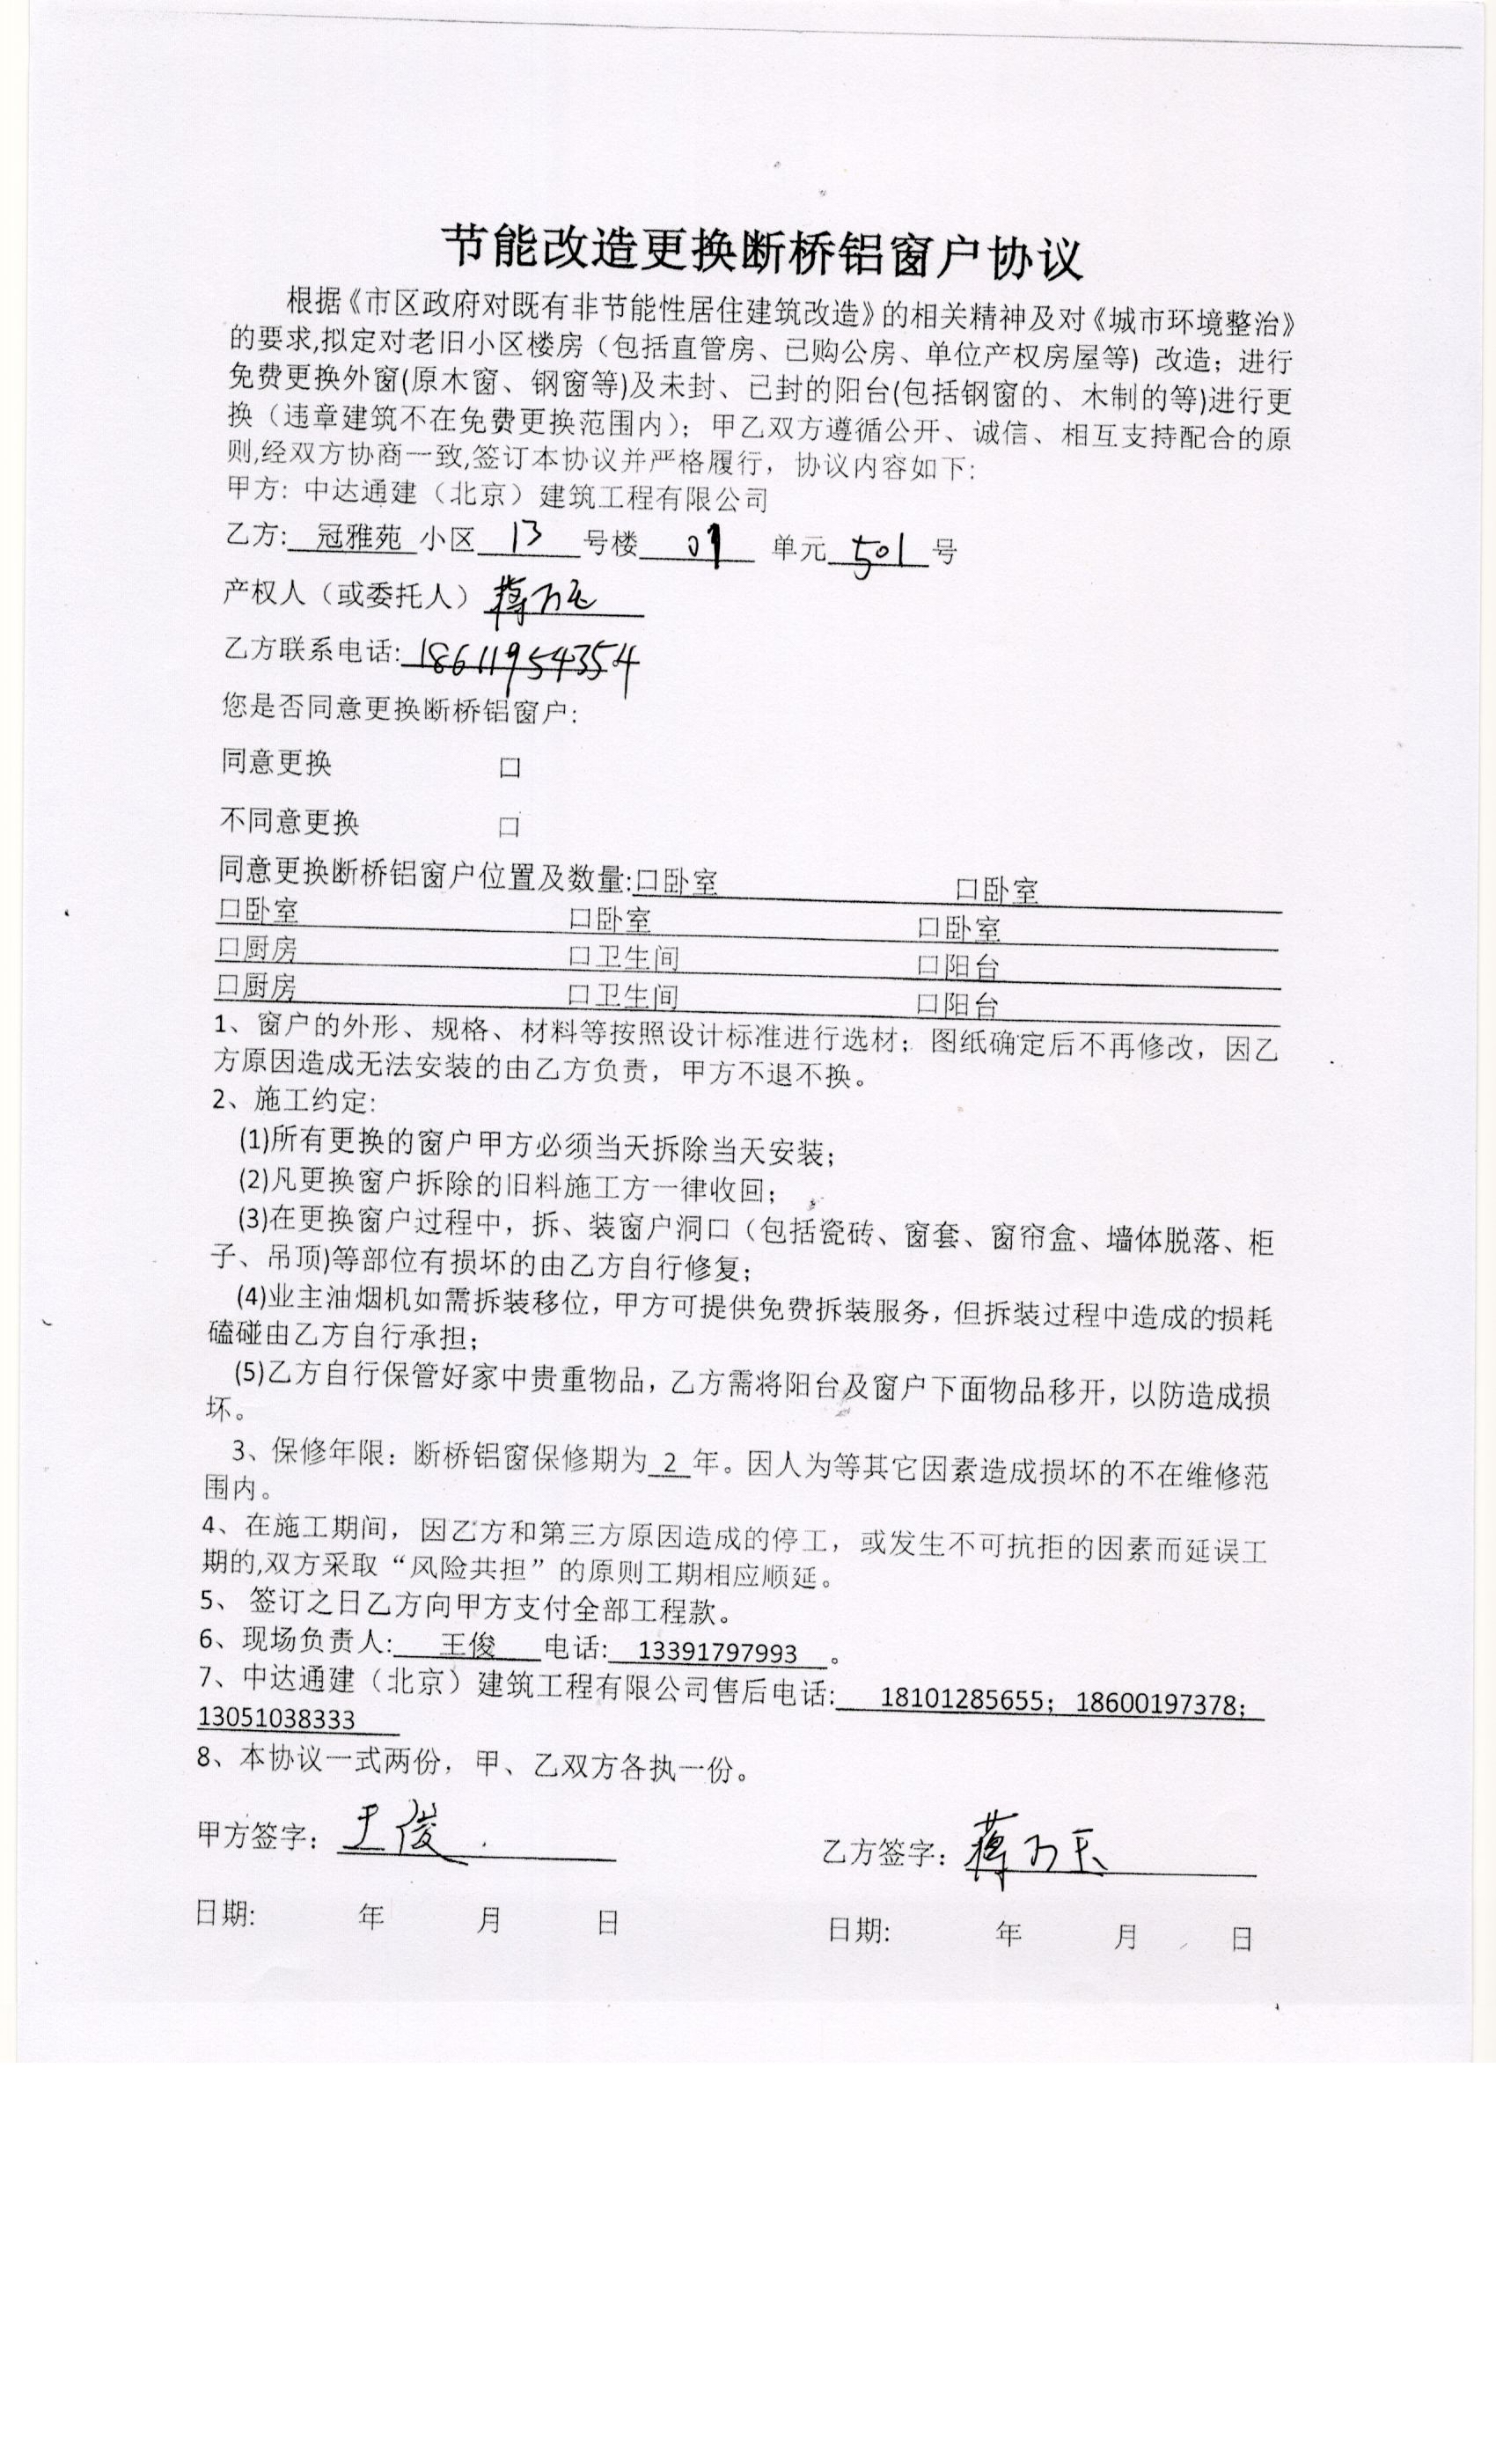 节能改造更换断桥铝窗户协议
根据《市区政府对既有非节能性居住建筑改造》的相关精神及对《城市环境整治》
的要求,拟定对老旧小区楼房（包括直管房、已购公房、单位产权房屋等）改造；进行
免费更换外窗(原木窗、钢窗等)及未封、已封的阳台(包括钢窗的、木制的等)进行更
换（违章建筑不在免费更换范围内）；甲乙双方遵循公开、诚信、相互支持配合的原
则,经双方协商一致,签订本协议并严格履行，协议内容如下:
甲方: 中达通建（北京）建筑工程有限公司
乙方: 冠雅苑 小区 13 号楼 01 单元 501 号
产权人（或委托人）蒋
乙方联系电话: 18611954354
您是否同意更换断桥铝窗户:
同意更换 口
不同意更换 口
同意更换断桥铝窗户位置及数量:口卧室 口卧室
口卧室 口卧室 口卧室
口厨房 口卫生间 口阳台
口厨房 口卫生间 口阳台
1、窗户的外形、规格、材料等按照设计标准进行选材；图纸确定后不再修改，因乙
方原因造成无法安装的由乙方负责，甲方不退不换。
2、施工约定:
(1)所有更换的窗户甲方必须当天拆除当天安装；
(2)凡更换窗户拆除的旧料施工方一律收回；
(3)在更换窗户过程中，拆、装窗户洞口（包括瓷砖、窗套、窗帘盒、墙体脱落、柜
子、吊顶)等部位有损坏的由乙方自行修复；
(4)业主油烟机如需拆装移位，甲方可提供免费拆装服务，但拆装过程中造成的损耗
磕碰由乙方自行承担；
(5)乙方自行保管好家中贵重物品，乙方需将阳台及窗户下面物品移开，以防造成损
坏。
3、保修年限：断桥铝窗保修期为 2 年。因人为等其它因素造成损坏的不在维修范
围内。
4、在施工期间，因乙方和第三方原因造成的停工，或发生不可抗拒的因素而延误工
期的,双方采取“风险共担”的原则工期相应顺延。
5、 签订之日乙方向甲方支付全部工程款。
6、现场负责人: 王俊 电话: 13391797993 。
7、中达通建（北京）建筑工程有限公司售后电话: 18101285655；18600197378；
13051038333
8、本协议一式两份，甲、乙双方各执一份。
甲方签字：王俊 乙方签字：蒋
日期: 年 月 日 日期: 年 月 日